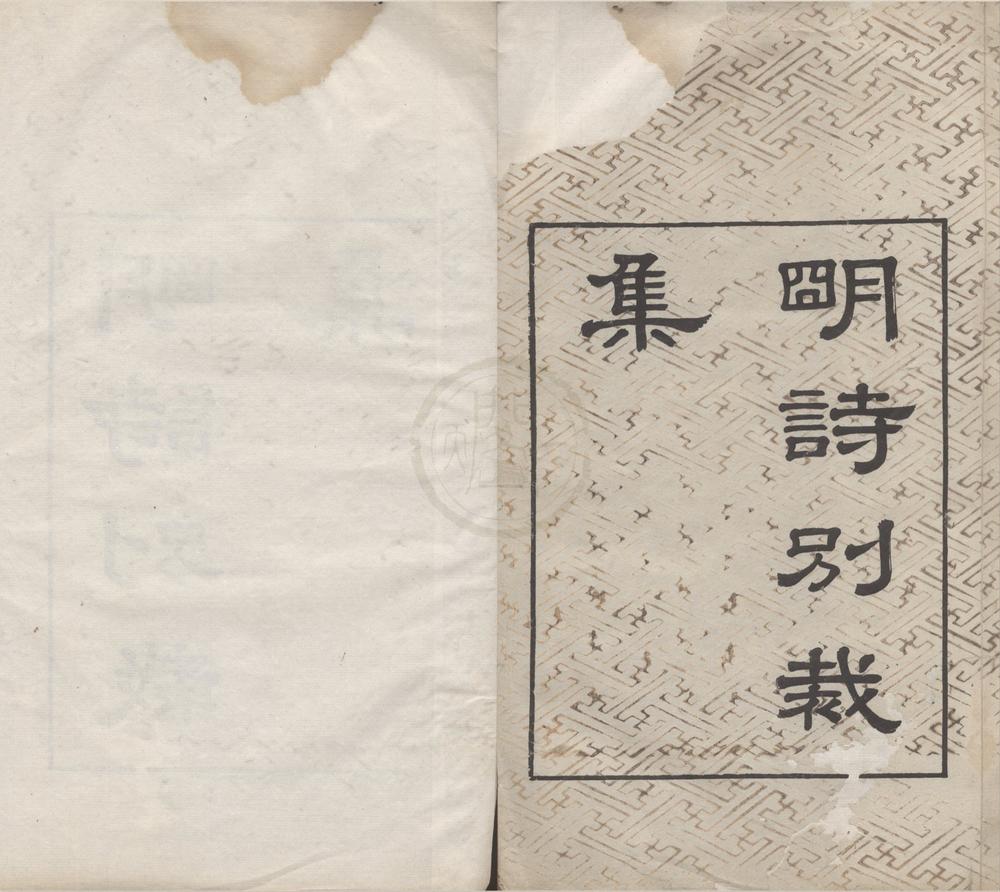 明詩別裁
集